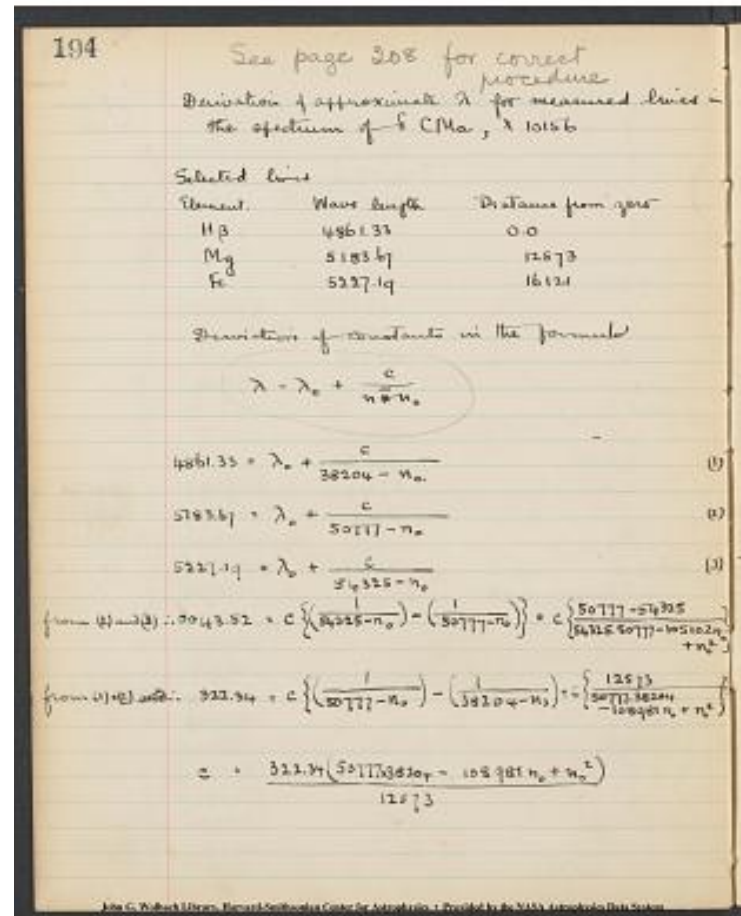 194
See page 208 for correct
procedure
Derivation of approximate λ for measured lines in
the spectrum of δ CMa, λ 10156
Selected lines
Element. Wave length Distance from zero
Hβ 4861.33 0.0
Mg 5183.67 12573
Fe 5227.19 16121
Derivation of constants in the formula
λ = λ₀ + c / n - n₀
4861.33 = λ₀ + c / 38204 - n₀. (1)
5183.67 = λ₀ + c / 50777 - n₀ (2)
5227.19 = λ₀ + c / 54325 - n₀ (3)
from (2) and (3) ∴ 0043.52 = c {(1 / 54325 - n₀) - (1 / 50777 - n₀)} = c {50777 - 54325 / 54325.50777 - 105102 n₀ + n₀²}
from (1) + (2) ∴ 322.34 = c {(1 / 50777 - n₀) - (1 / 38204 - n₀)} = {12573 / 50777.38204 - 108981 n₀ + n₀²}
c = 322.34 (50777.38204 - 108981 n₀ + n₀²) / 12573
John G. Wolbach Library, Harvard-Smithsonian Center for Astrophysics • Provided by the NASA Astrophysics Data System